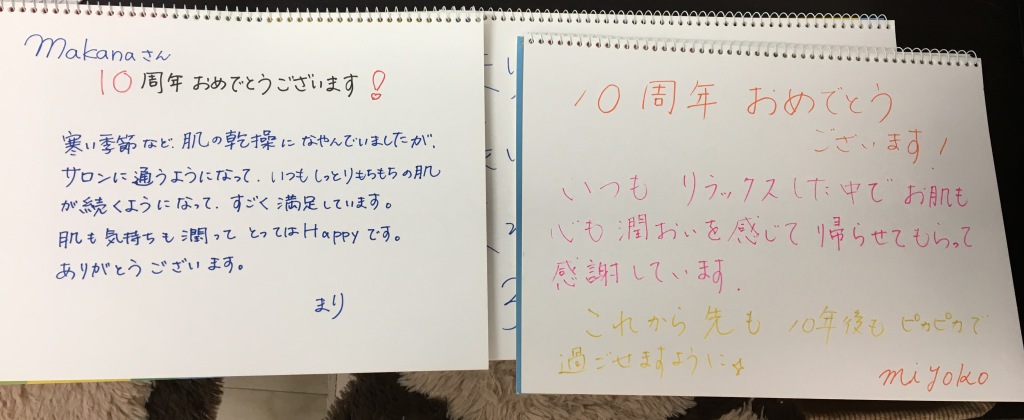 Makanaさん
10周年 おめでとうございます!
寒い季節など、肌の乾操になやんでいましたが、
サロンに通うようになって、いつもしっとりもちもちの肌
が続くようになって、すごく満足しています。
肌も気持ちも潤って とってはHappyです。
ありがとうございます。
まり
10周年 おめでとう
ございます!
いつも リラックスした中で お肌も
心も潤おいを感じて 帰らせてもらって
感謝しています.
これから先も 10年後も ピカピカで
過ごせますように☆
miyoko